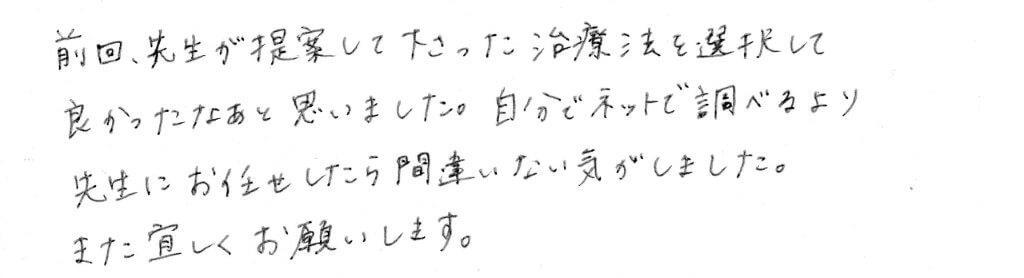 前回、先生が提案して下さった治療法を選択して
良かったなあと思いました。自分でネットで調べるより
先生にお任せしたら間違いない気がしました。
また宜しくお願いします。